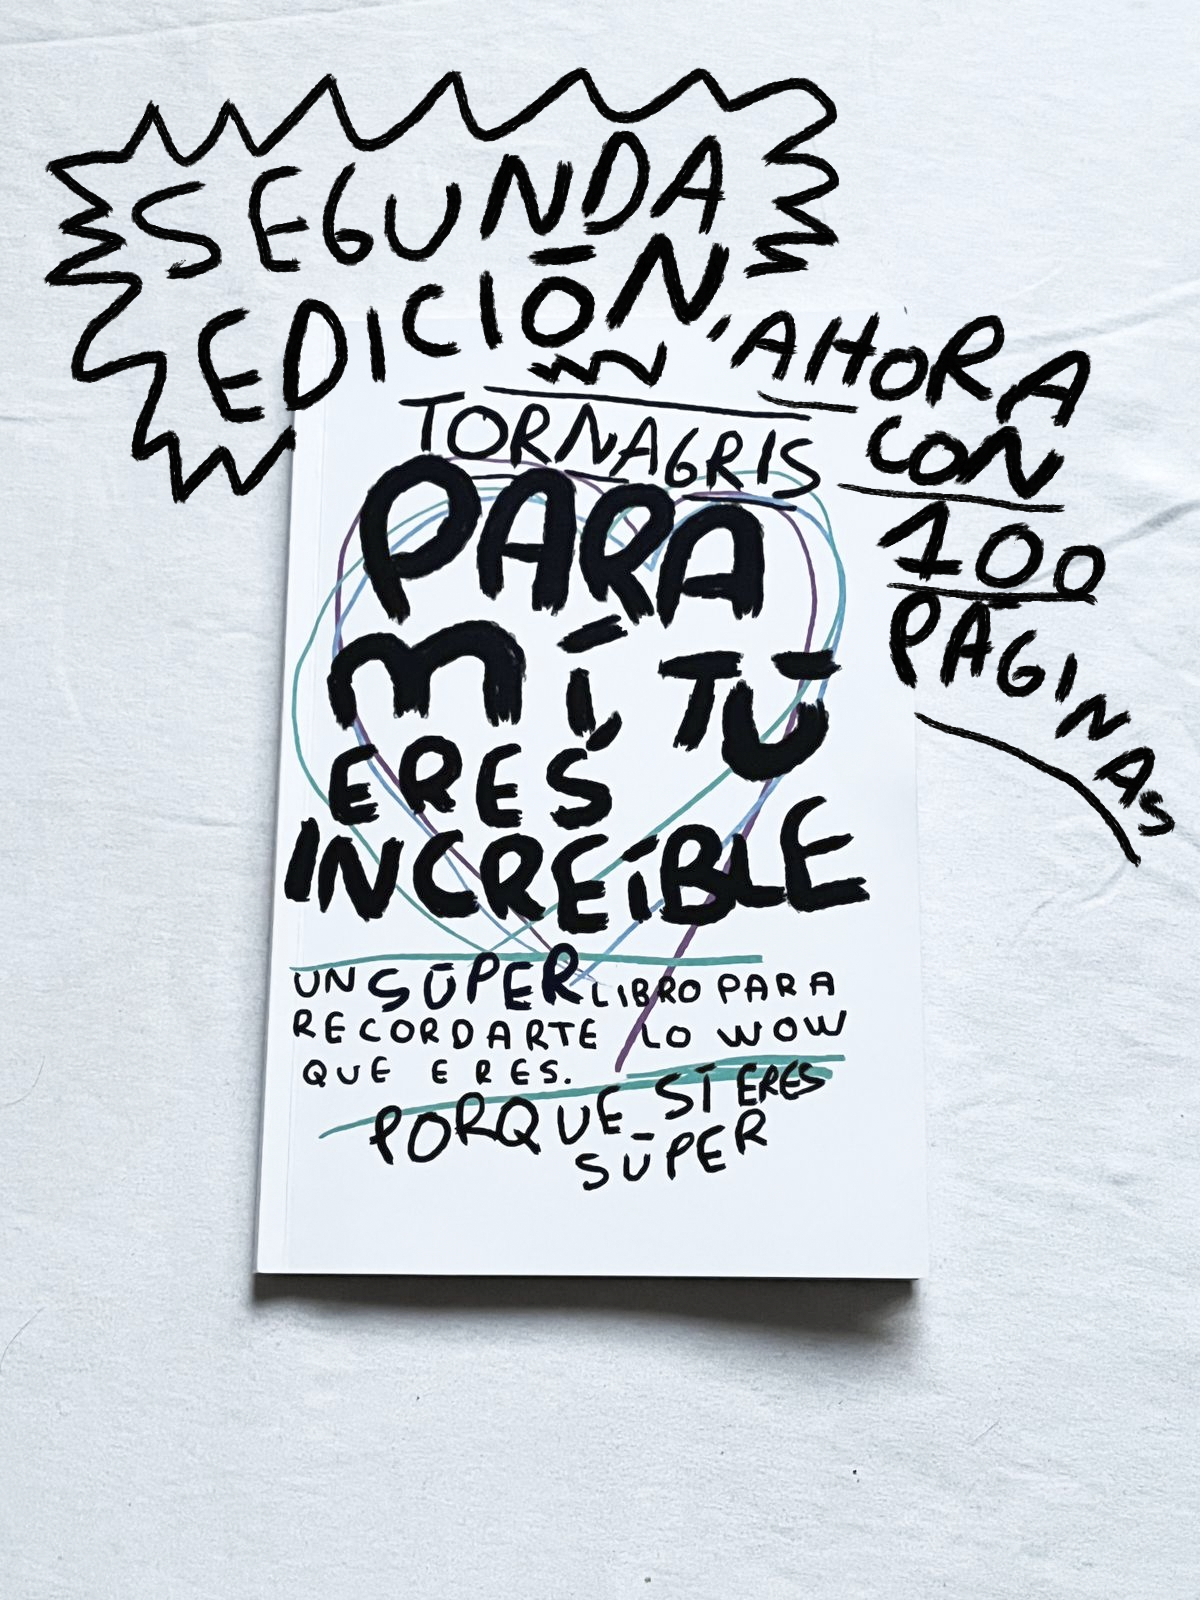 SEGUNDA
EDICIÓN,
AHORA
CON
100
PÁGINAS
TORNAGRIS
PARA
MÍ, TÚ
ERES
INCREÍBLE
UN SÚPER LIBRO PARA
RECORDARTE LO WOW
QUE ERES.
PORQUE SÍ ERES
SÚPER